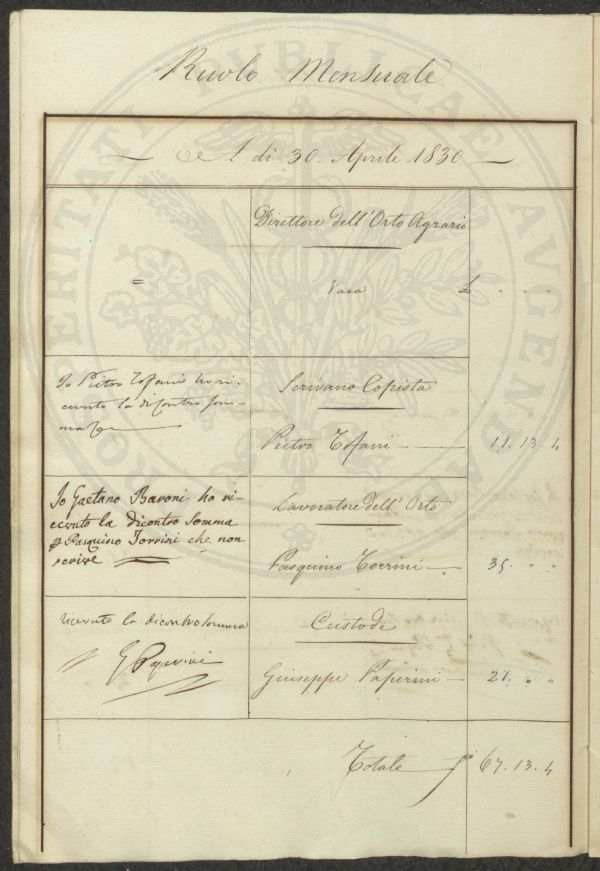 Ruolo Mensuale
A dì 30 Aprile 1830
Direttore dell'Orto Agrario
= Vaca £ " " "
Io Pietro Tofani ho ri-
cevuto la dicontro som-
ma
Scrivano Copista
Pietro Tofani 11.13.4
Io Gaetano Baroni ho ri-
cevuto la dicontro Somma
Pasquino Torrini che non
scrive
Lavoratore dell'Orto
Pasquino Torrini 35. " "
ricevuto la dicontro somma
G Paperini
Custode
Giuseppe Paperini 21. " "
Totale £ 67.13.4
PROSPERITATI PUBLICAE AUGENDAE